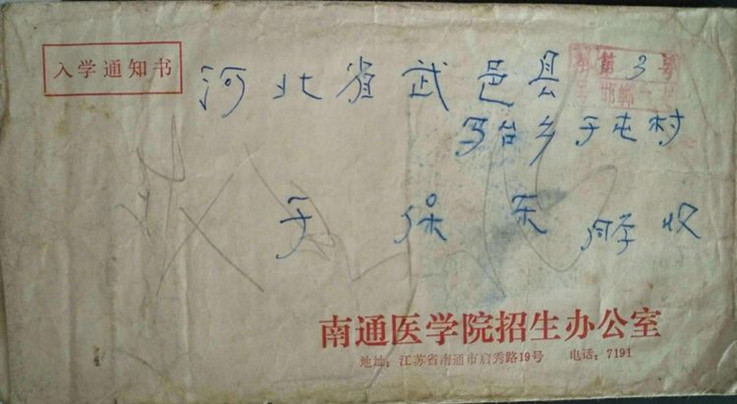 入学通知书
第 3 号
邯郸
河北省武邑县
马台乡于屯村
于保东 同学 收
南通医学院招生办公室
地址:江苏省南通市启秀路19号 电话:7191